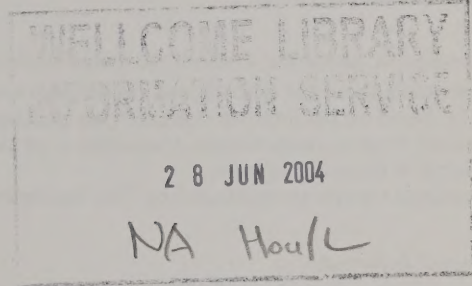 WELLCOME LIBRARY
INFORMATION SERVICE
2 8 JUN 2004
NA Hou/L